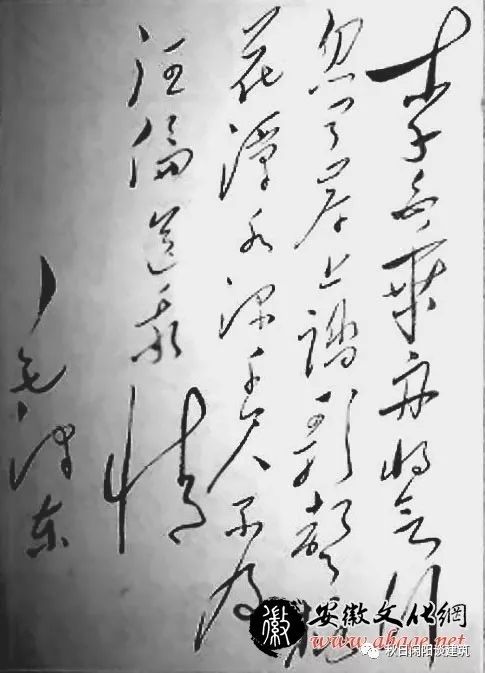 李白乘舟将欲行
忽闻岸上踏歌聲桃
花潭水深千尺不及
汪倫送我情
毛泽东
徽 安徽文化網
www.ahage.net
秋日闲阳谈建筑